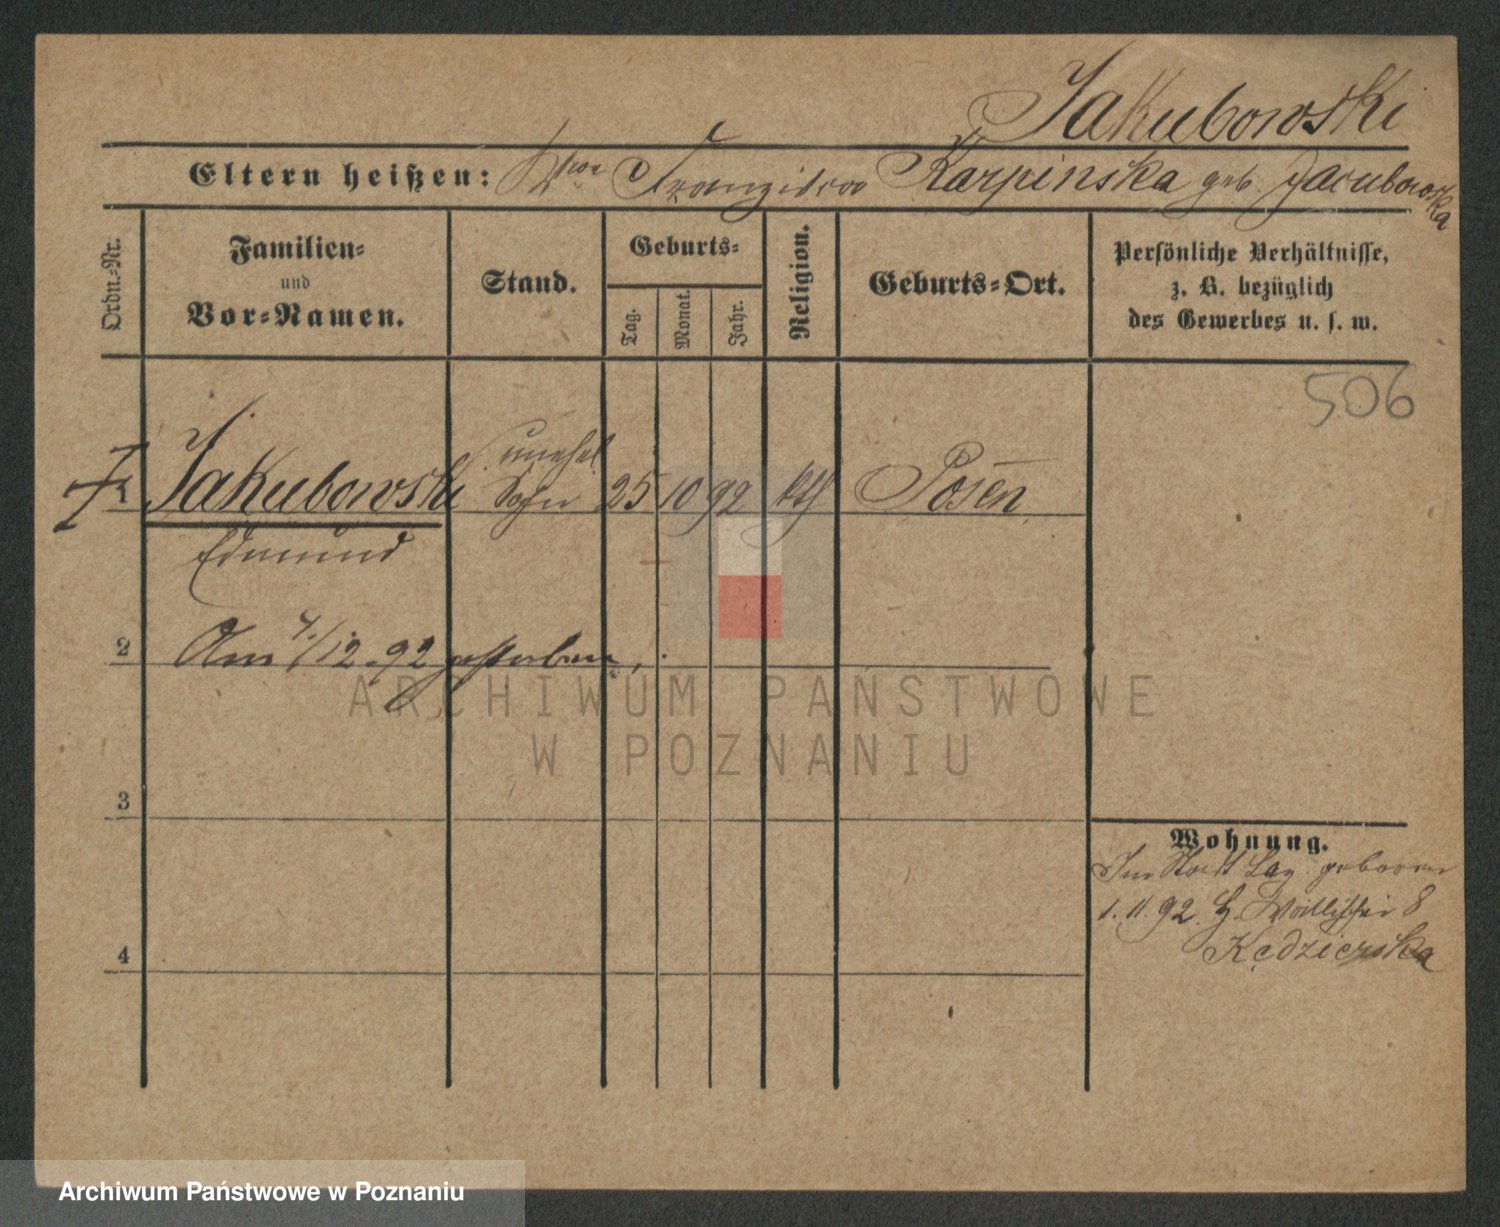 Jakubowski
Eltern heißen: Wwe Franziska Karpinska geb. Jacubowska
Ordn.-Nr.
Familien- und Vor-Namen.
Stand.
Geburts-
Tag.
Monat.
Jahr.
Religion.
Geburts-Ort.
Persönliche Verhältnisse,
z. B. bezüglich
des Gewerbes u. s. w.
506
unehel.
1 Jakubowski Sohn 25 10 92 kth Posen
Edmund
2 Am 4./12. 92 gestorben.
3
Wohnung.
Im Stadt Laz. geboren
1. 11. 92. 8
4
Kędzierska
ARCHIWUM PAŃSTWOWE
W POZNANIU
Archiwum Państwowe w Poznaniu